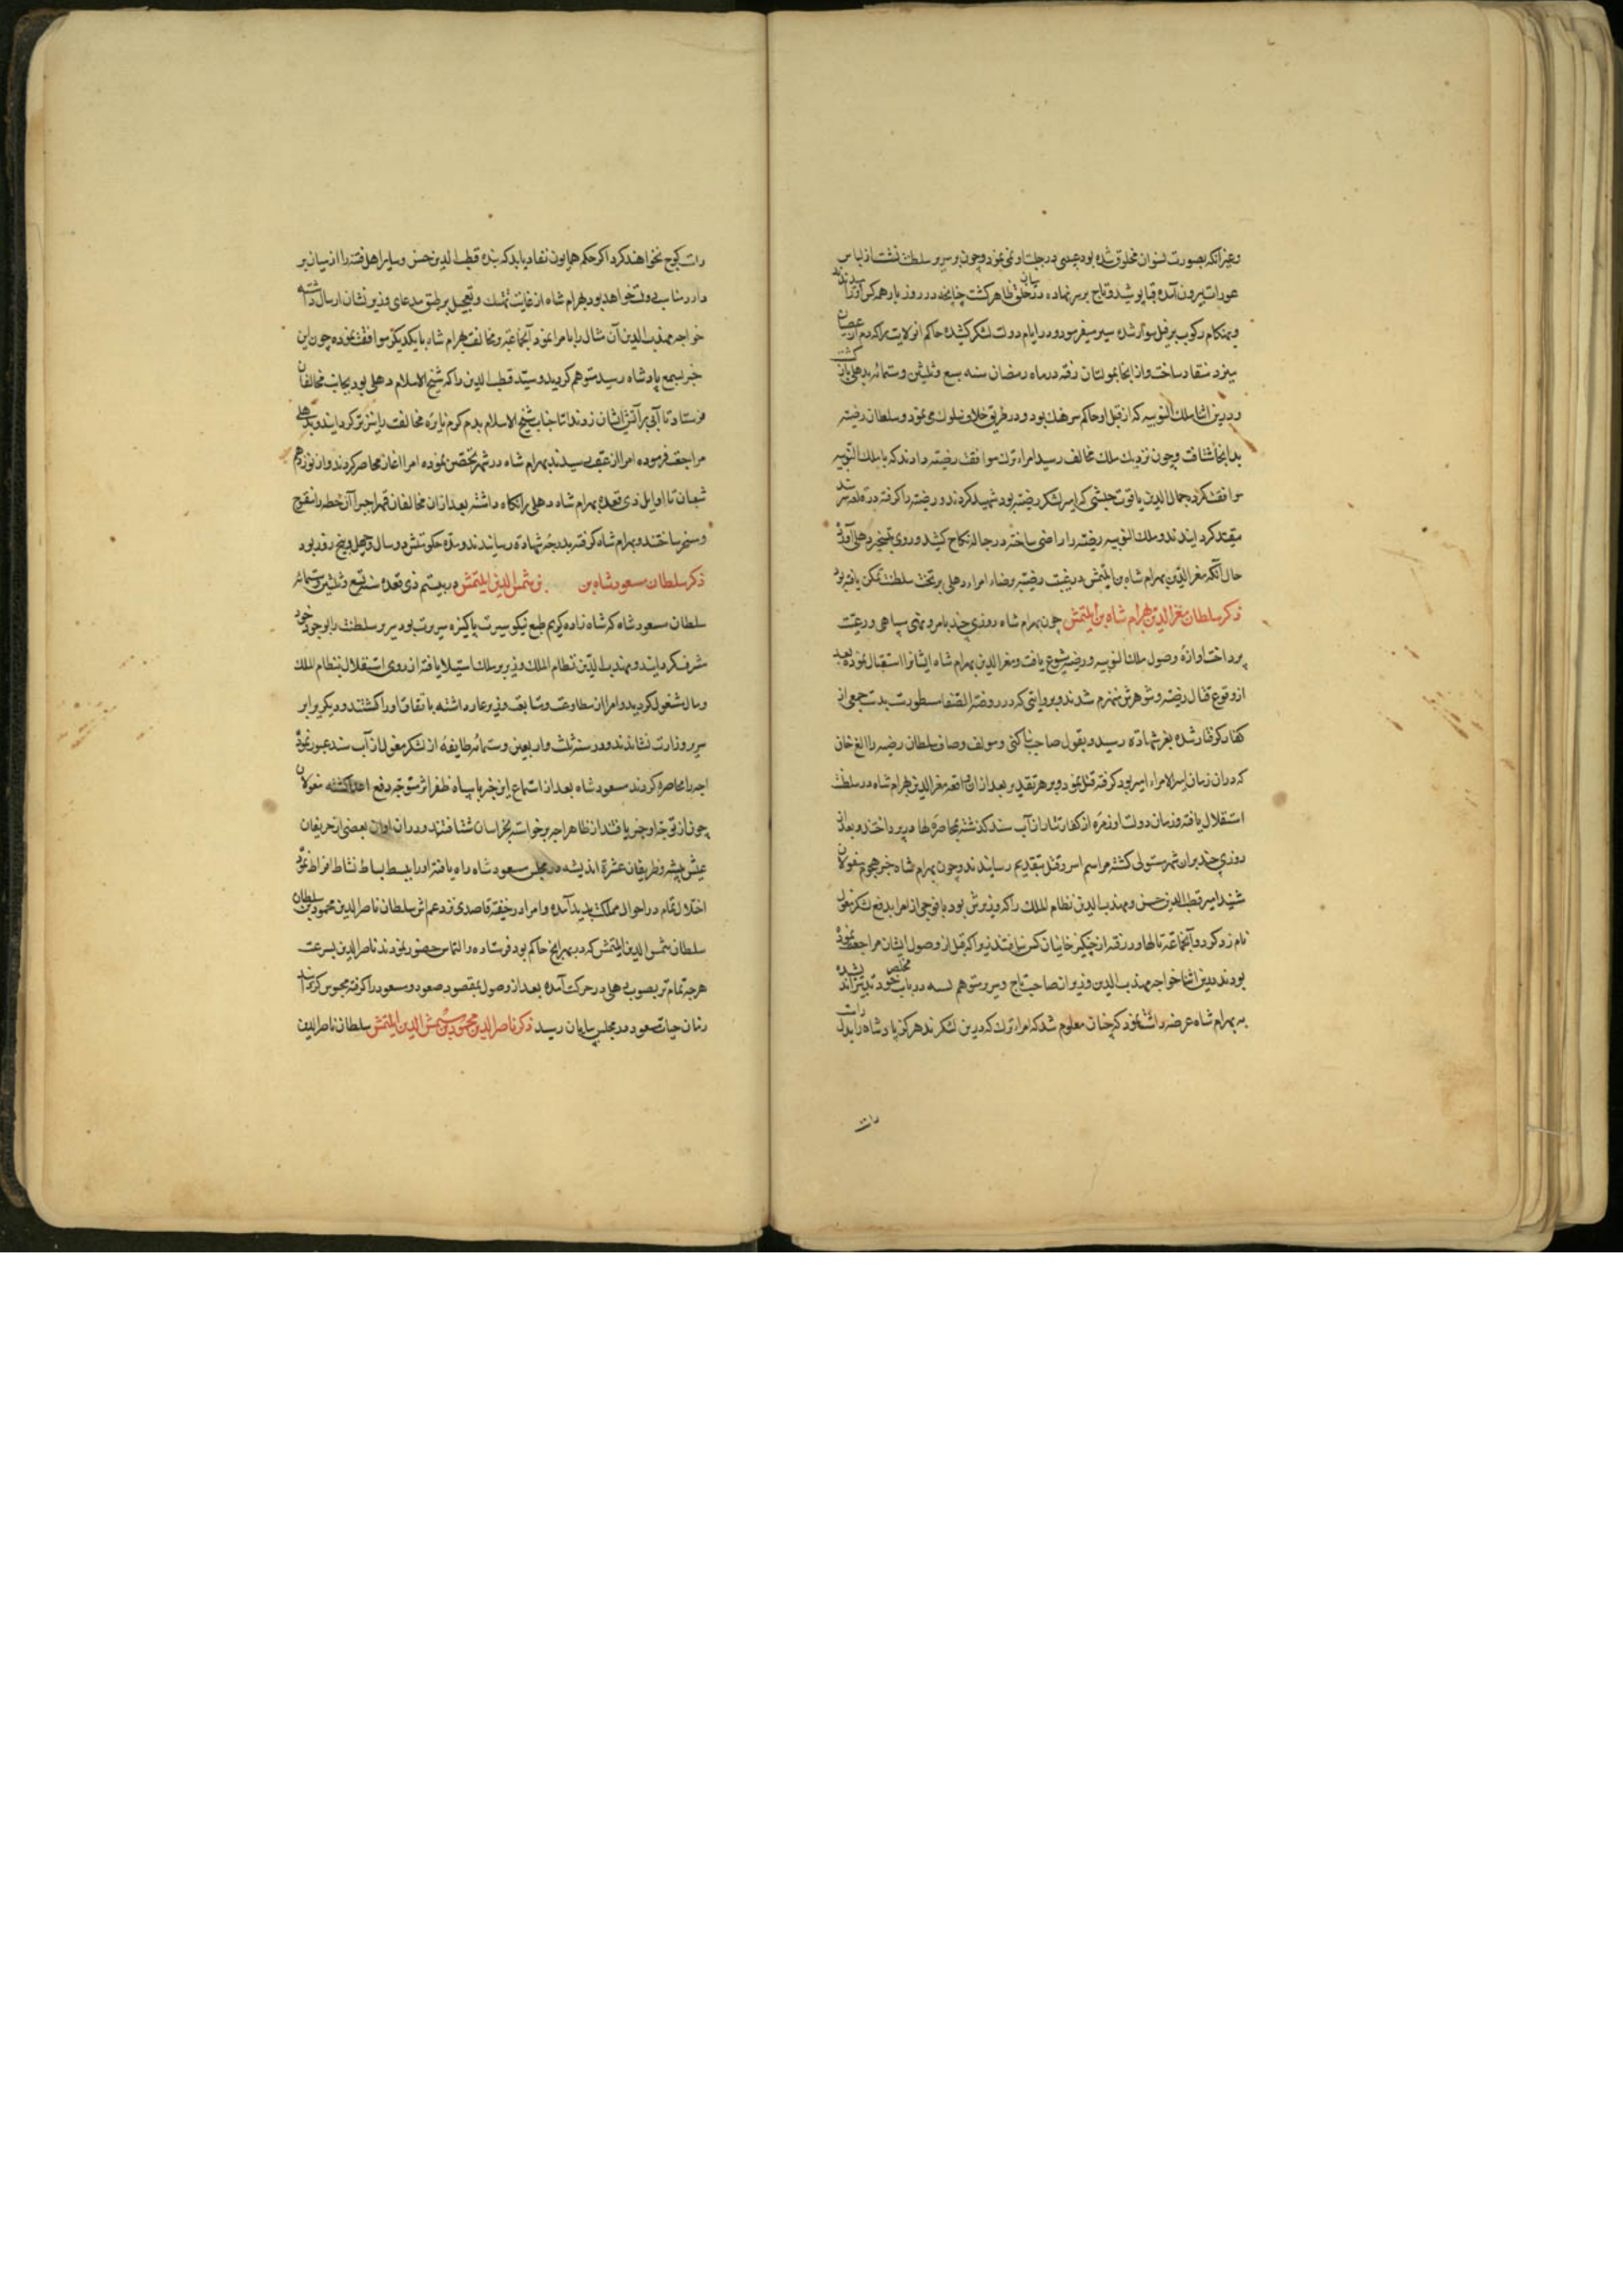 وغیر آنکه بصورت نسوان مخلوق شده بود عیبی در جبلت او نمی نمود و چون بر سریر سلطنت نشست از لباس
عورات بیرون آمده قبا پوشید و تاج بر سر نهاده در میان خلق ظاهر کشت چنانچه در روز بار همه کس او را میدیدند
و بهنکام رکوب بر فیل سوار شده سیر میفرمود و در ایام دولت لشکر کشیده حاکم آن ولایت را که دم از عصیان
میزد منقاد ساخت و از آنجا بمولتان رفته در ماه رمضان سنه سبع و ثلثین و ستمائه بدهلی باز کشت
و درین اثنا ملک التونیه که از قبل او حاکم سرهند بود و در طریق خلاف سلوک می نمود و سلطان رضیه
بدانجا شتافت و چون نزدیک ملک مخالف رسید امراء ترک موافقت رضیه دادند که با ملک التونیه
موافقت کرده جمال الدین یاقوت حبشی که امیر لشکر رضیه بود شهید کردند و رضیه را کرفته در قلعه
مقید کردانیدند و ملک التونیه رضیه را راضی ساخته در حباله نکاح کشید و روی بتسخیر دهلی آورد
حال آنکه معز الدین بهرام شاه بن ایلتمش در غیبت رضیه برضاء امراء دهلی بر تخت سلطنت تمکن یافته بود
ذکر سلطان معز الدین بهرام شاه بن ایلتمش چون بهرام شاه روزی چند بامر و نهی سپاهی و رعیت
پرداخت آوازه وصول ملک التونیه و رضیه شیوع یافت و معز الدین بهرام شاه ایشانرا استقبال نموده بعد
از وقوع قتال رضیه و شوهرش منهزم شدند و بروایتی که در روضة الصفا مسطورست بدست جمعی از
کفار کرفتار شده بعز شهادت رسید و بقول صاحب بناکتی و مولف وصاف سلطان رضیه را الغ خان
که در آن زمان امیر الامراء بود کرفته قتل نمود و بر هر تقدیر بعد از آن واقعه معز الدین بهرام شاه در سلطنت
استقلال یافت و در زمان دولت او زمره از کفار تتار از آب سند کذشته بمحاصره لهاور پرداختند و بعد از
روزی چند بر آن شهر مستولی کشته مراسم اسر و قتل بتقدیم رسانیدند و چون بهرام شاه خبر هجوم مغولان
شنید امیر قطب الدین حسن و مهذب الدین نظام الملک را که وزیرش بود با فوجی از امرا بدفع لشکر مغول
نام زد کرد و آنجماعة تا لهاور رفته از چنکیز خانیان کس نیافتند زیرا که قبل از وصول ایشان مراجعت نموده
بودند درین اثنا خواجه مهذب الدین وزیر از صاحب تاج و سریر متوهم شده در باب مخلص خود تدبیر
به بهرام شاه عرضه داشت نمود که چنان معلوم شد که امراء ترک که درین لشکرند هرکز پادشاه را بدل راست
راست
راست کوچ نخواهند کرد اکر حکم همایون نفاذ یابد که بنده قطب الدین حسن و سایر اهل فتنه را از میان بر
دارد مناسب وقت خواهد بود بهرام شاه از غایت و تعجیل بر طبق مدعای وزیر نشان ارسال داشته
خواجه مهذب الدین آن مثال را بامرا نمود آنجماعة در مخالفت بهرام شاه با یکدیکر موافقت نموده چون این
خبر بسمع پادشاه رسید متوهم کردید و سید قطب الدین را که شیخ الاسلام دهلی بود بجانب مخالفان
فرستاد تا آبی بر آتش ایشان زند اما جناب شیخ الاسلام بدم کرم نایره مخالفت را تیزتر کردانید و بدهلی
مراجعت فرموده امرا از عقب رسیدند بهرام شاه در شهر تحصن نموده امرا اغاز محاصره کردند و از نوزدهم
شعبان تا اوایل ذی قعده بهرام شاه دهلی را نکاه داشته بعد از آن مخالفان قهرا جبرا آن خطه را مفتوح
و مسخر ساختند و بهرام شاه کرفته بدرجه شهادت رسانیدند و مدت حکومتش دو سال و چهل و پنج روز بود
ذکر سلطان مسعود شاه بن شمس الدین ایلتمش در بیستم ذی قعده سنه تسع و ثلثین و ستمائه
سلطان مسعود شاه که شاه زاده کریم طبع نیکو سیرت پاکیزه سریرت بود سریر سلطنت را بوجود خود
مشرف کردانید و مهذب الدین نظام الملک وزیر بر ملک استیلا یافته از روی استقلال بنظام الملک
و مال مشغول کردید و امرا از مطاوعت و متابعت وزیر عار داشته باتفاق او را کشتند و دیکری را بر
سریر وزارت نشاندند و در سنه ثلث و اربعین و ستمائه طایفه از لشکر مغول از آب سند عبور نموده
اجه را محاصره کردند مسعود شاه بعد از استماع این خبر با سپاه ظفر اثر متوجه دفع اعدا کشته مغولان
چون از توجه او خبر یافتند از ظاهر اجه برخواسته بخراسان شتافتند و در آن اوان بعضی از حریفان
عیش پیشه و ظریفان عشرة اندیشه در مجلس مسعود شاه راه یافته او را ببسط بساط نشاط افراط نموده
اختلال تمام در احوال مملکت پدید آمده و امراء در خفیه قاصدی نزد عمش سلطان ناصر الدین محمود بن سلطان
سلطان شمس الدین ایلتمش که در بهرایج حاکم بود فرستاده التماس حضور نمودند ناصر الدین بسرعت
هرچه تمام تر بصوب دهلی در حرکت آمده بعد از وصول بمقصود صعود و مسعود را کرفته محبوس کردانید
زمان حیات مسعود در مجلس بپایان رسید ذکر ناصر الدین محمود بن شمس الدین ایلتمش سلطان ناصر الدین